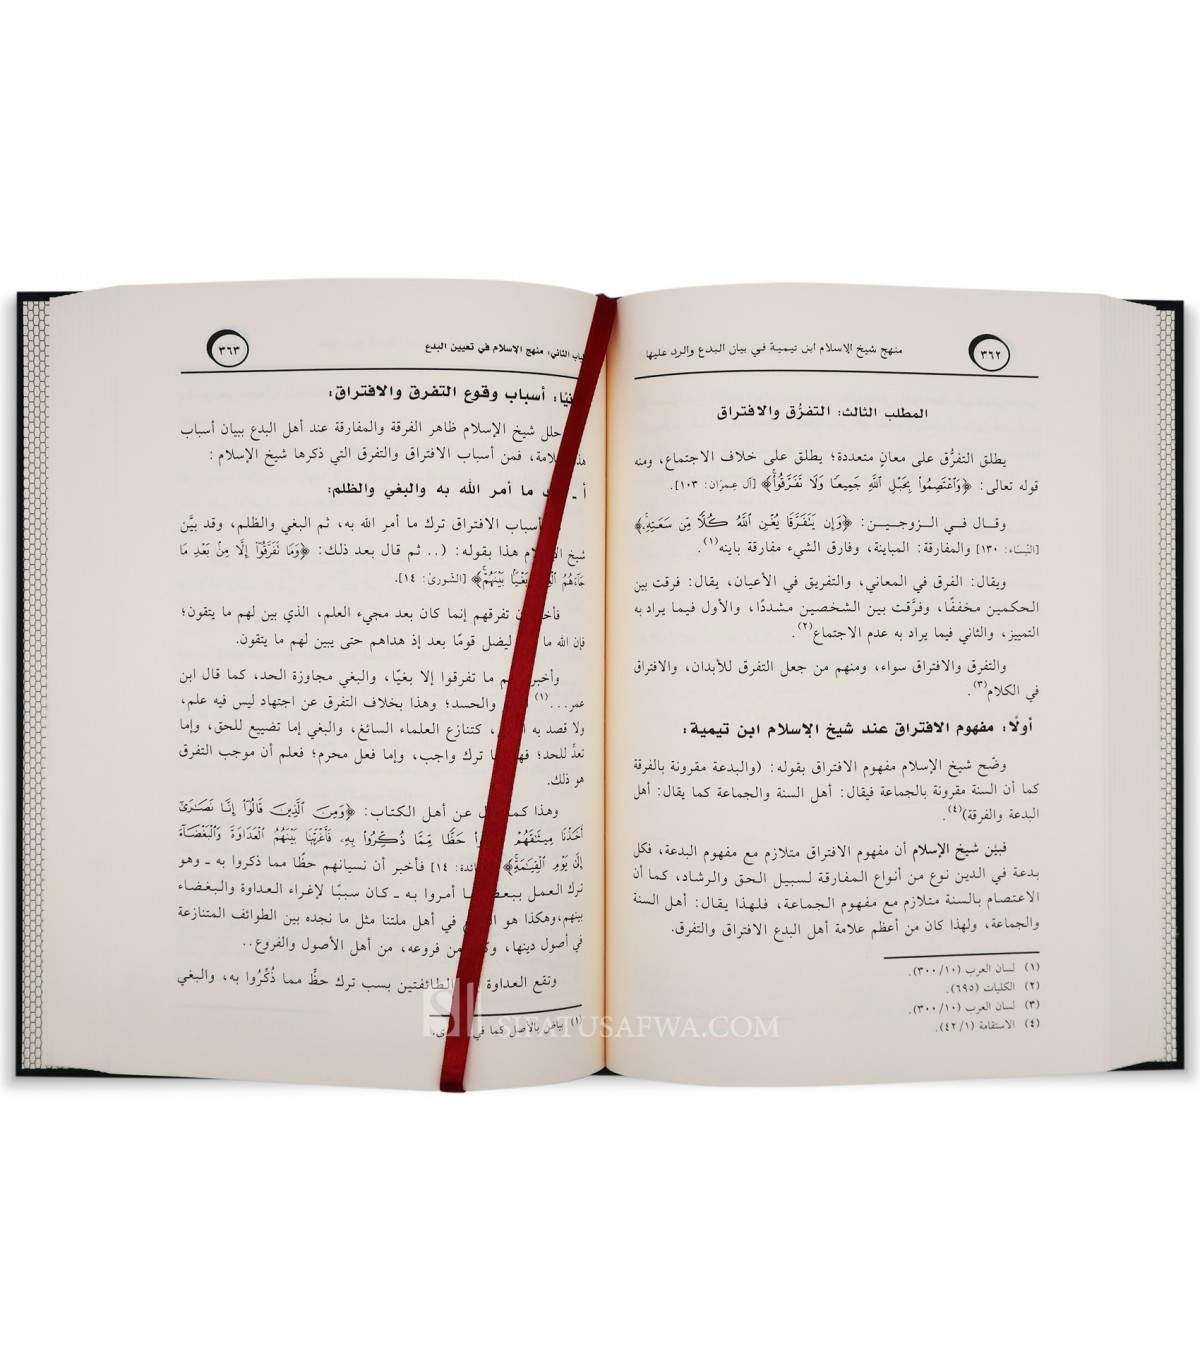 ٣٦٢
منهج شيخ الإسلام ابن تيمية في بيان البدع والرد عليها
المطلب الثالث: التفرُّق والافتراق
يطلق التفرُّق على معانٍ متعددة؛ يطلق على خلاف الاجتماع، ومنه
قوله تعالى: ﴿وَاعْتَصِمُوا بِحَبْلِ اللَّهِ جَمِيعًا وَلَا تَفَرَّقُوا﴾ [آل عِمرَان: ١٠٣].
وقال في الزوجين: ﴿وَإِن يَتَفَرَّقَا يُغْنِ اللَّهُ كُلًّا مِّن سَعَتِهِ﴾
[النِّسَاء: ١٣٠] والمفارقة: المباينة، وفارق الشيء مفارقة باينه(١).
ويقال: الفرق في المعاني، والتفريق في الأعيان، يقال: فرقت بين
الحكمين مخففًا، وفرَّقت بين الشخصين مشددًا، والأول فيما يراد به
التمييز، والثاني فيما يراد به عدم الاجتماع(٢).
والتفرق والافتراق سواء، ومنهم من جعل التفرق للأبدان، والافتراق
في الكلام(٣).
أولًا: مفهوم الافتراق عند شيخ الإسلام ابن تيمية:
وضّح شيخ الإسلام مفهوم الافتراق بقوله: (والبدعة مقرونة بالفرقة
كما أن السنة مقرونة بالجماعة فيقال: أهل السنة والجماعة كما يقال: أهل
البدعة والفرقة)(٤).
فبيّن شيخ الإسلام أن مفهوم الافتراق متلازم مع مفهوم البدعة، فكل
بدعة في الدين نوع من أنواع المفارقة لسبيل الحق والرشاد، كما أن
الاعتصام بالسنة متلازم مع مفهوم الجماعة، فلهذا يقال: أهل السنة
والجماعة، ولهذا كان من أعظم علامة أهل البدع الافتراق والتفرق.
(١) لسان العرب (٣٠٠/١٠).
(٢) الكليات (٦٩٥).
(٣) لسان العرب (٣٠٠/١٠).
(٤) الاستقامة (٤٢/١).
الباب الثاني: منهج الإسلام في تعيين البدع
٣٦٣
أسباب وقوع التفرق والافتراق:
حلل شيخ الإسلام ظاهر الفرقة والمفارقة عند أهل البدع ببيان أسباب
فمن أسباب الافتراق والتفرق التي ذكرها شيخ الإسلام :
أ ـ ما أمر الله به والبغي والظلم:
أسباب الافتراق ترك ما أمر الله به، ثم البغي والظلم، وقد بيَّن
شيخ هذا بقوله: (.. ثم قال بعد ذلك: ﴿وَمَا تَفَرَّقُوا إِلَّا مِنْ بَعْدِ مَا
جَاءَهُمُ بَغْيًا بَيْنَهُمْ﴾ [الشّورى: ١٤].
تفرقهم إنما كان بعد مجيء العلم، الذي بين لهم ما يتقون؛
فإن الله ما ليضل قومًا بعد إذ هداهم حتى يبين لهم ما يتقون.
ما تفرقوا إلا بغيًا، والبغي مجاوزة الحد، كما قال ابن
عمر...(١) والحسد؛ وهذا بخلاف التفرق عن اجتهاد ليس فيه علم،
ولا قصد به كتنازع العلماء السائغ، والبغي إما تضييع للحق، وإما
تعدٍّ للحد؛ ترك واجب، وإما فعل محرم؛ فعلم أن موجب التفرق
هو ذلك.
وهذا عن أهل الكتاب: ﴿وَمِنَ الَّذِينَ قَالُوا إِنَّا نَصَارَىٰ
أَخَذْنَا مِيثَاقَهُمْ حَظًّا مِّمَّا ذُكِّرُوا بِهِ فَأَغْرَيْنَا بَيْنَهُمُ الْعَدَاوَةَ وَالْبَغْضَاءَ
إِلَىٰ يَوْمِ الْقِيَامَةِ﴾ ١٤] فأخبر أن نسيانهم حظًا مما ذكروا به ـ وهو
ترك العمل أمروا به ـ كان سببًا لإغراء العداوة والبغضاء
بينهم، وهكذا هو في أهل ملتنا مثل ما نجده بين الطوائف المتنازعة
في أصول دينها، من فروعه، من أهل الأصول والفروع..
وتقع العداوة الطائفتين بسب ترك حظٍّ مما ذُكِّرُوا به، والبغي
(١) بياض بالأصل كما في
SHATUSAFWA.COM